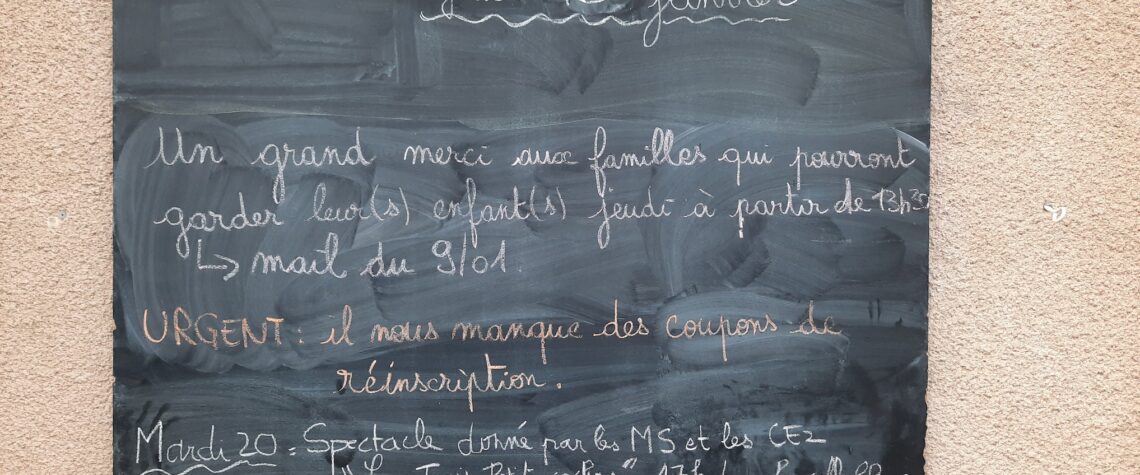 janvier
Un grand merci aux familles qui pourront
garder leur(s) enfant(s) jeudi à partir de 13h30
↳ mail du 9/01.
URGENT : il nous manque des coupons de
réinscription.
Mardi 20 : Spectacle donné par les MS et les CE2